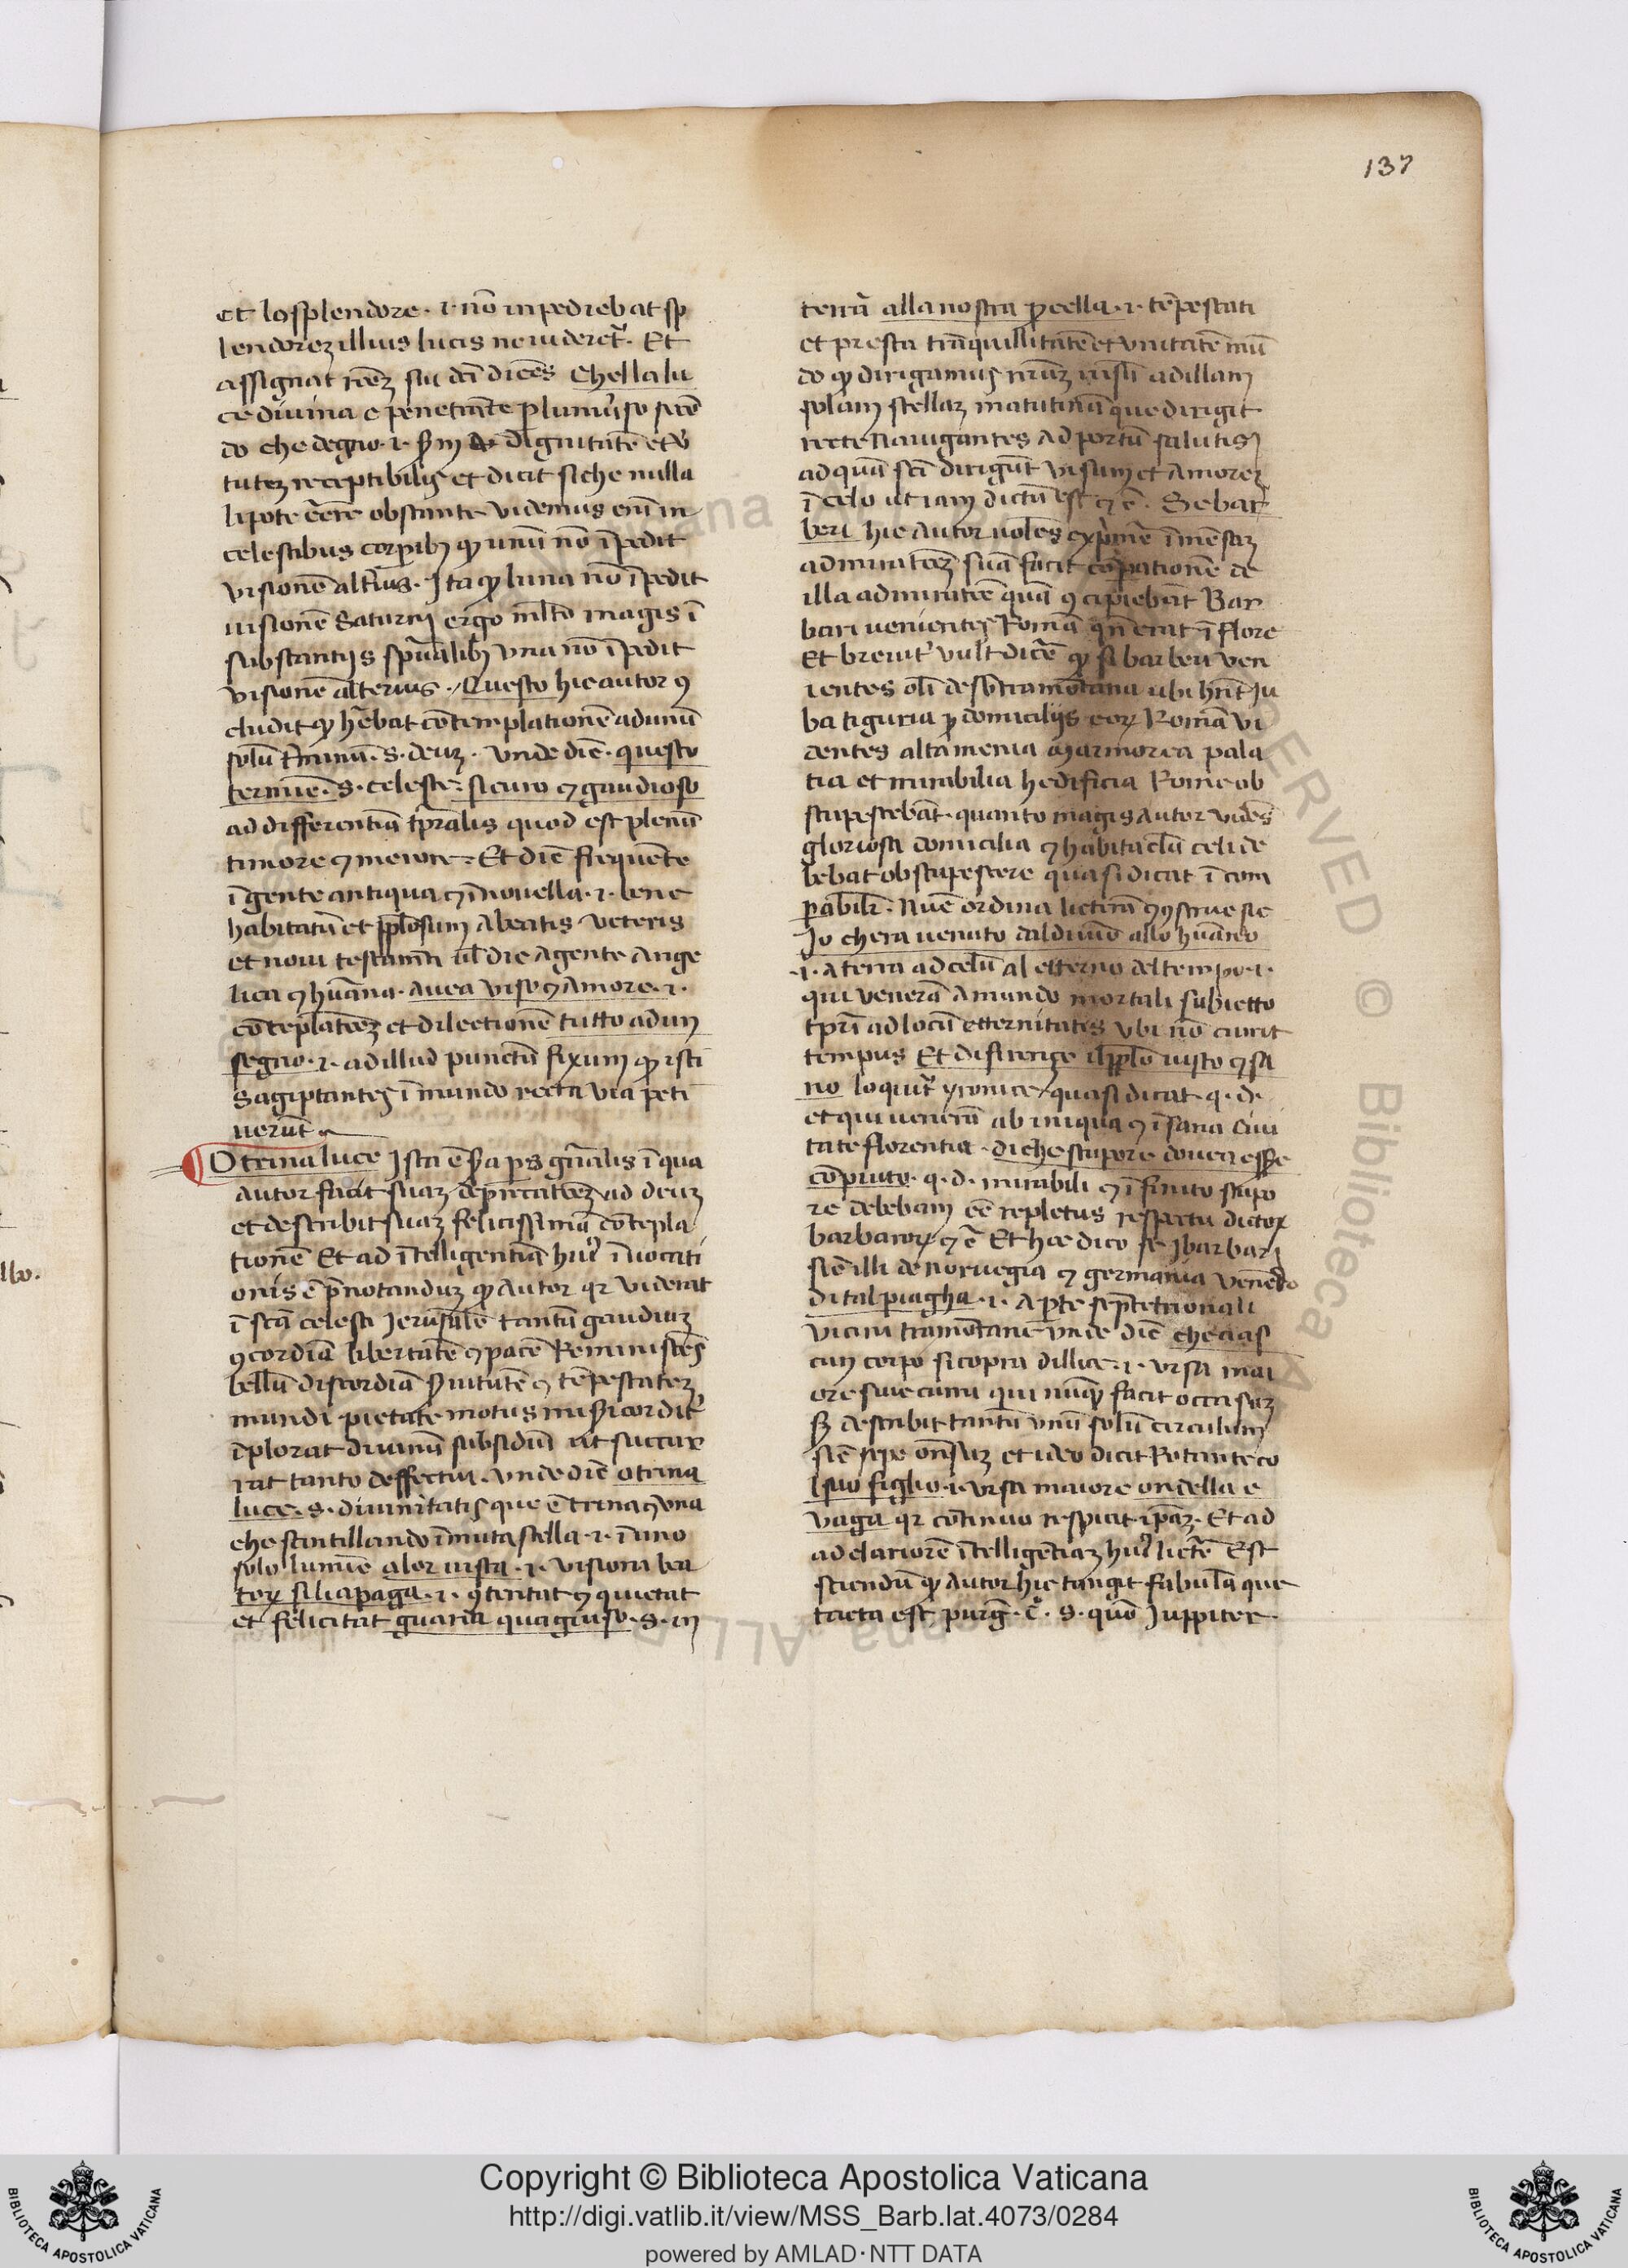 137
et lo splendore .i. nō inpediebat sp
lendorez illius lucis ne uideret͛. Et
assignat rōēz sui dcī dicēs Chella lu
ce diuina e penetrāte p lumūso secō
do che degno .i. s͛m dignitatē et v͛
tutez receptibilis et dicit si che nulla
li pote eēre obstante videmus enī in
celestibus corpibꝫ qꝫ unū nō īpedit
visionē alt͛ius. Ita qꝫ luna nō īpedit
uisionē Saturnj ergo ml̄to magis ī
substantijs sp̄ualibꝫ vna nō īpedit
visionē alterius. Questo hic autor ꝯ
cludit qꝫ hēbat contemplationē ad unū
solū t͛minū .s. deuz. vnde diē. questo
termīe .s. celeste. sicuro ⁊ gaudioso
ad differentiā tp̄ralis quod est plenū
timore ⁊ merore. Et diē frequēte
ī gente antiqua ⁊ ī nouella .i. bene
habitatū et pplōsum a beatis veteris
et noui testamētī ul̄ dic a gente ange
lica ⁊ hūana. auea viso ⁊ amore .i.
cōtēplatōēz et dilectionē tutto ad un
segno .i. ad illud punctū fixum qꝫ isti
sagiptantes ī mundo recta via peti
uerūt
O trina luce Ista ē s͛a ps gn͛alis ī qua
autor facit suaz depcatōēz ad deuz
et describit suaz felicissimā cōtēpla
tionē Et ad ītelligentiā huī͛ īuocati
onis ē p̄notanduz qꝫ autor qꝛ viderat
ī sca celesti Jerusalē tantū gaudiuz
ꝯcordiā libertatē ⁊ pacē Reminiscēs
bellū discordiā s͛uitutē ⁊ tēpestatez
mundi pietate motus mis͛icordit͛
īplorat diuinū subsidiū ut succur
rat tanto deffectui. vnde diē o trina
luce .s. diuinitatis que ē trina ⁊ una
che scintillando ī muta stella .i. ī uno
solo lumīe a lor uista .i. visiona bea
toꝝ si li apaga .i. ꝯtentat ⁊ quietat
et felicitat guarda qua giuso .s. in
terrā alla nostra pcella .i. tēpestati
et presta trāquillitatē et vnitatē mū
do qꝫ dirigamus nrūz uisū ad illam
solam stellaz matutinā que dirigit
recte nauigantes ad portū salutis
ad quā scī dirigūt visum et amorez
ī celo ut iam dictū est ⁊ c̄. Se bar
beri hic autor uolēs expimē īmēsaz
admiratōēz suā facit cōpationē de
illa admiratiōē quā ꝯcipiebāt Bar
bari uenientes Romā qn̄ erat ī flore
Et breuit͛ vult dicē qꝫ si barberi ven
ientes oī de sb̄ tramōtana ubi hn̄t tu
ba tiguria p domicilijs eoꝝ Romā vi
dentes alta menia marmorea pala
tia et mirabilia hedificia Rome ob
stupescebāt. quanto magis autor vidēs
gloriosa domicilia ⁊ habitaclū celi de
bebat obstupescere quasi dicat ī com
pabilr. Nūc ordina lictirā ⁊ ꝯstrue sic
Io che era uenuto dal diuino allo hūano
.i. a terra ad celū al etterno del tempo .i.
qui venerā a mundo mortali subietto
tpri ad locū etternitatis vbi nō currit
tempus Et di firenze ī pplō iusto ⁊ sa
no loquit͛ yronice quasi dicat. q.d.
et qui ueneram ab iniqua ⁊ īsana ciui
tate florentia. di che stupore douea esse
cōpiuto. q.d. mirabili ⁊ īfinito stupo
re debebam eē repletus respectu dictoꝝ
barbaroꝝ ⁊ c̄ Et hoc dico se j barbarj
sic̄ illi de noruegia ⁊ germania venēdo
di tal piagha .i. a pte septētrionali
vicini tramōtane vnde diē che cias
cun corpo si copra d illice .i. vrsa mai
ore siue curru qui nūqꝫ facit occasuz
sꝫ describit tantū vnū solū circulum
sic̄ sepe onsuz et ideo dicit Rotante co
l suo figlio .i. vrsa maiore ondella e
vaga qꝛ cōtinuo respicit ipāz. Et ad
ad clariorē ītelligētiaz huī͛ lictē Est
sciendū qꝫ autor hic tangit fabulā que
tacta est purg̅. c͛. s. quō Juppiter
Copyright © Biblioteca Apostolica Vaticana
http://digi.vatlib.it/view/MSS_Barb.lat.4073/0284
powered by AMLAD·NTT DATA
BIBLIOTECA APOSTOLICA VATICANA
BIBLIOTECA APOSTOLICA VATICANA